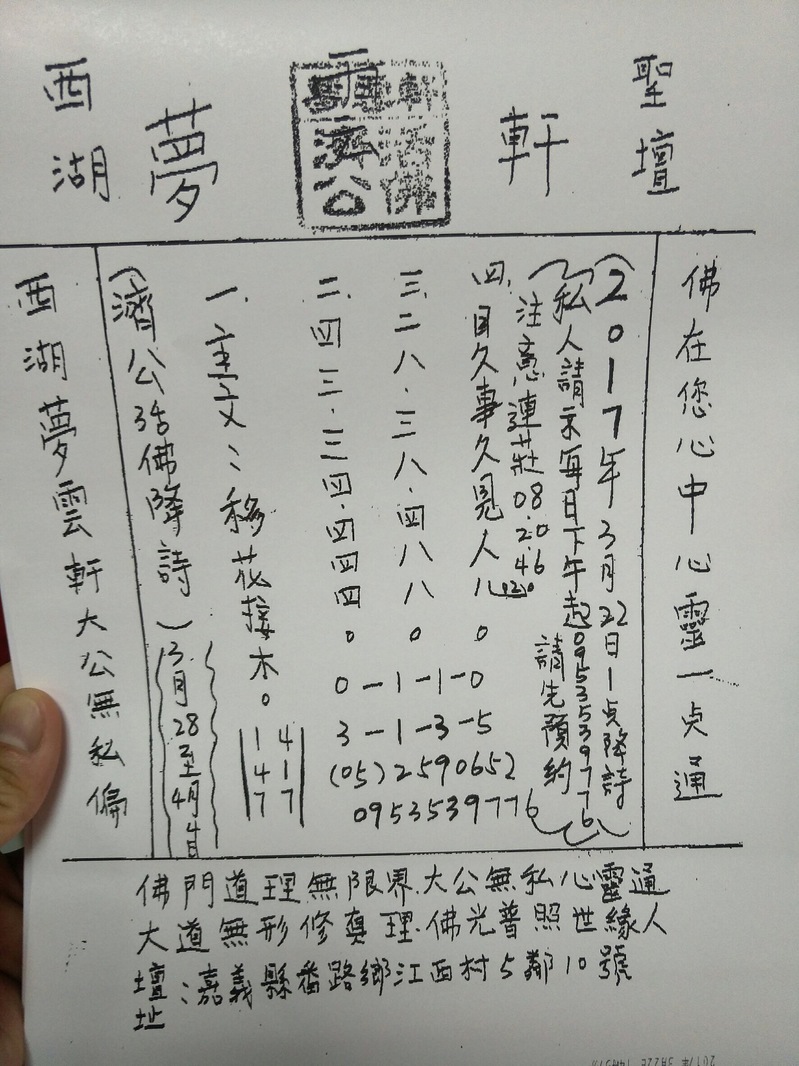 西湖 夢雲軒 聖壇
雲軒
濟公活佛
佛在您心中心靈一点通
(2017年3月22日1点降詩)
(私人請示每日下午起0953539776請先預約)
注意連莊08.20.46
四.目久事久見人八020。0-5
三.二八.三八.四八八。1-3
二.四三.三四.四四四。1-1
一.主文:移花接木。0-3
(05)2590652
0953539776
14
41
77
(濟公活佛降詩)3月28至4月4日
西湖夢雲軒大公無私偏
佛門道理無限界.大公無私心靈通
大道無形修真理.佛光普照世緣人
壇址:嘉義縣番路鄉江西村5鄰10號